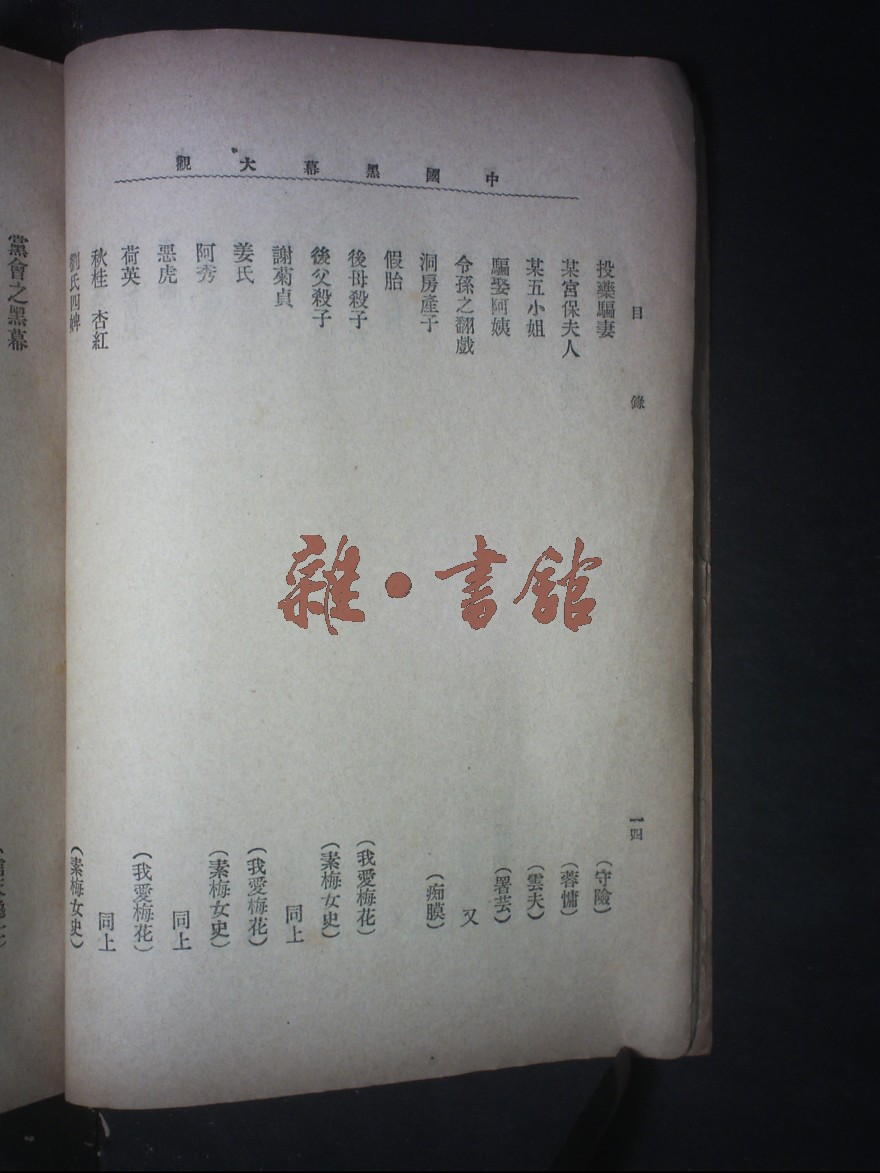 中國黑幕大觀
目錄 一四
投藥騙妻 （守險）
某宮保夫人 （蓉慵）
某五小姐 （雲夫）
騙娶阿姨 （署芸）
令孫之翻戲 又
洞房產子 （痴膜）
假胎
後母殺子 （我愛梅花）
後父殺子 （素梅女史）
謝菊貞 同上
姜氏 （我愛梅花）
阿秀 （素梅女史）
惡虎 同上
荷英 （我愛梅花）
秋桂 杏紅 同上
劉氏四婢 （素梅女史）
黨會之黑幕
雜·書館